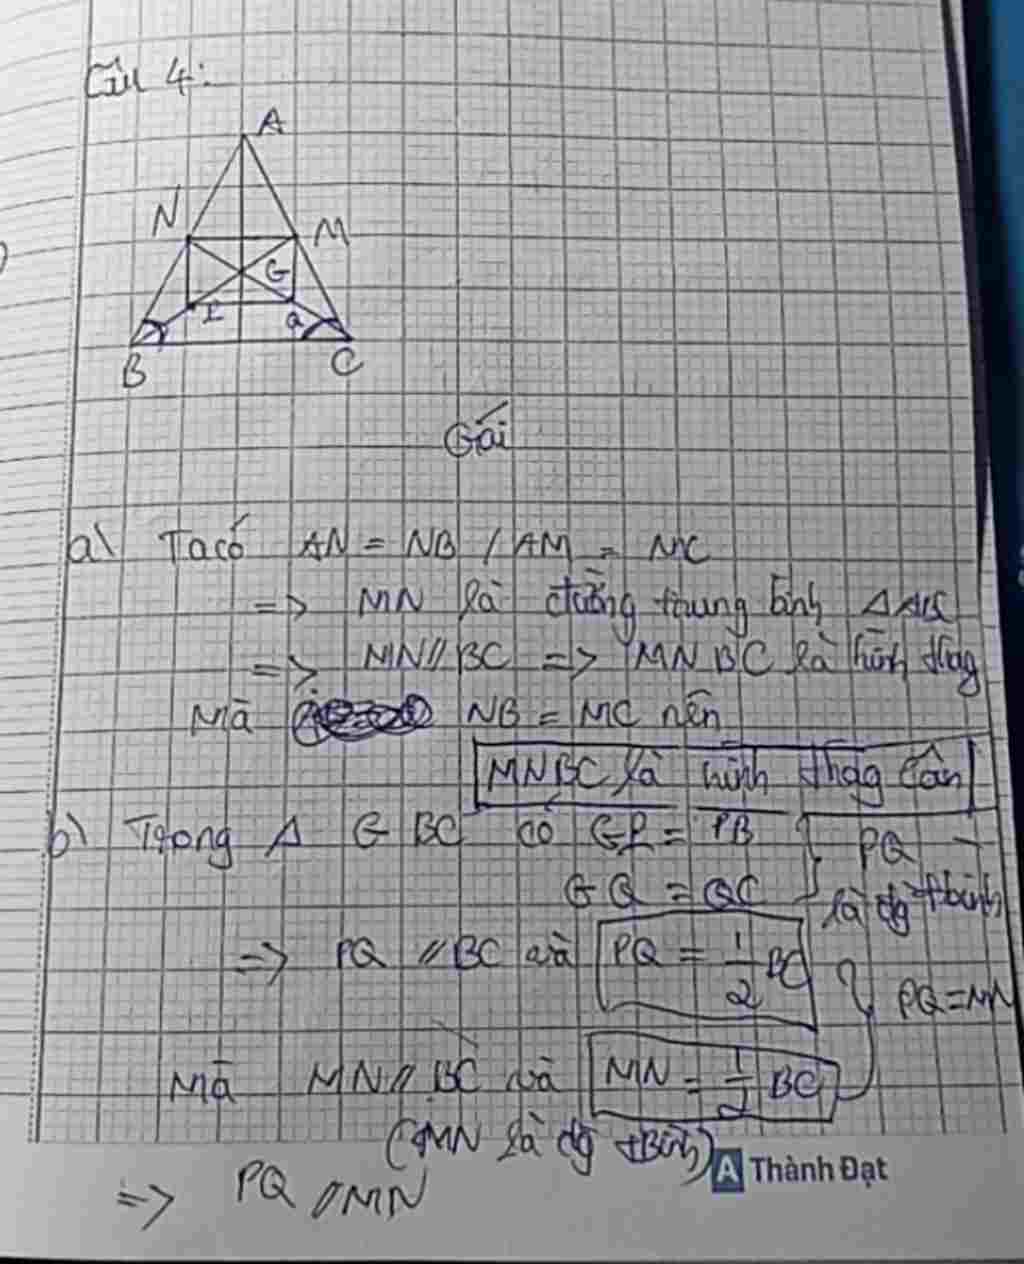 Câu 4:
A
N
M
G
I
Q
B
C
Gải
a) Ta có AN = NB / AM = MC
=> MN là đường trung bình Δ ABC
=> MN // BC => MNBC là hình thag
Mà NB = MC nên
MNBC là hình thag cân
b) Trong Δ GBC có GP = PB
GQ = QC
PQ
là đg tbình
=> PQ // BC và PQ = 1/2 BC
PQ = MN
Mà MN // BC và MN = 1/2 BC
(MN là đg tBình)
=> PQ // MN
A Thành Đạt